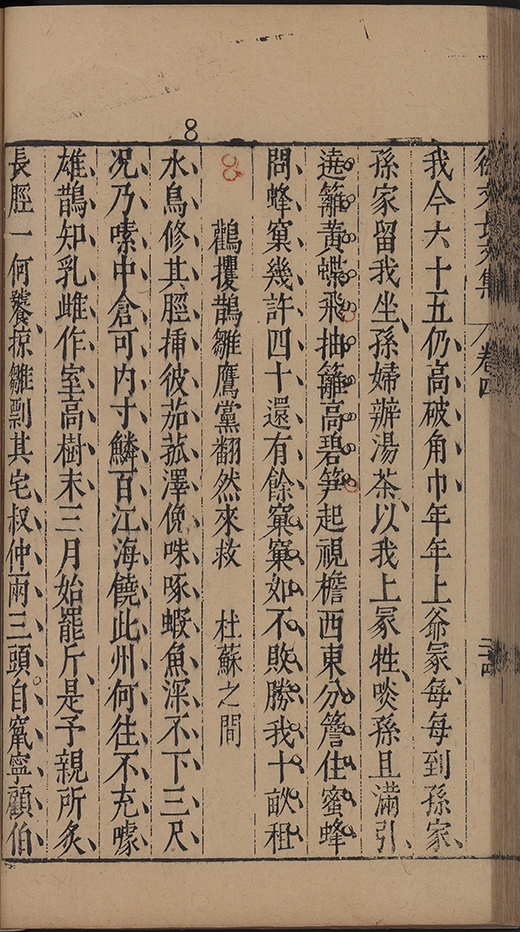 徐文長文集 卷四
我今六十五仍高破角巾年年上爺冢每每到孫家
孫家留我坐孫婦辦湯茶以我上冢牲啖孫且滿引
遶籬黃蝶飛抽籬高碧筍起視檐西東分簷住蜜蜂
問蜂窠幾許四十還有餘窠窠如不敗勝我十畝租
8
鸛攫鵲雛鷹黨翻然來救 杜蘇之間
水鳥修其脛揷彼茄菰澤俛咮啄蝦魚深不下三尺
况乃嗉中倉可内寸鱗百江海饒此州何往不充㗲
雄鵲知乳雌作室高樹末三月始罷斤是予親所炙
長脛一何饕掠雛剽其宅叔仲兩三頭自窠寧顧伯